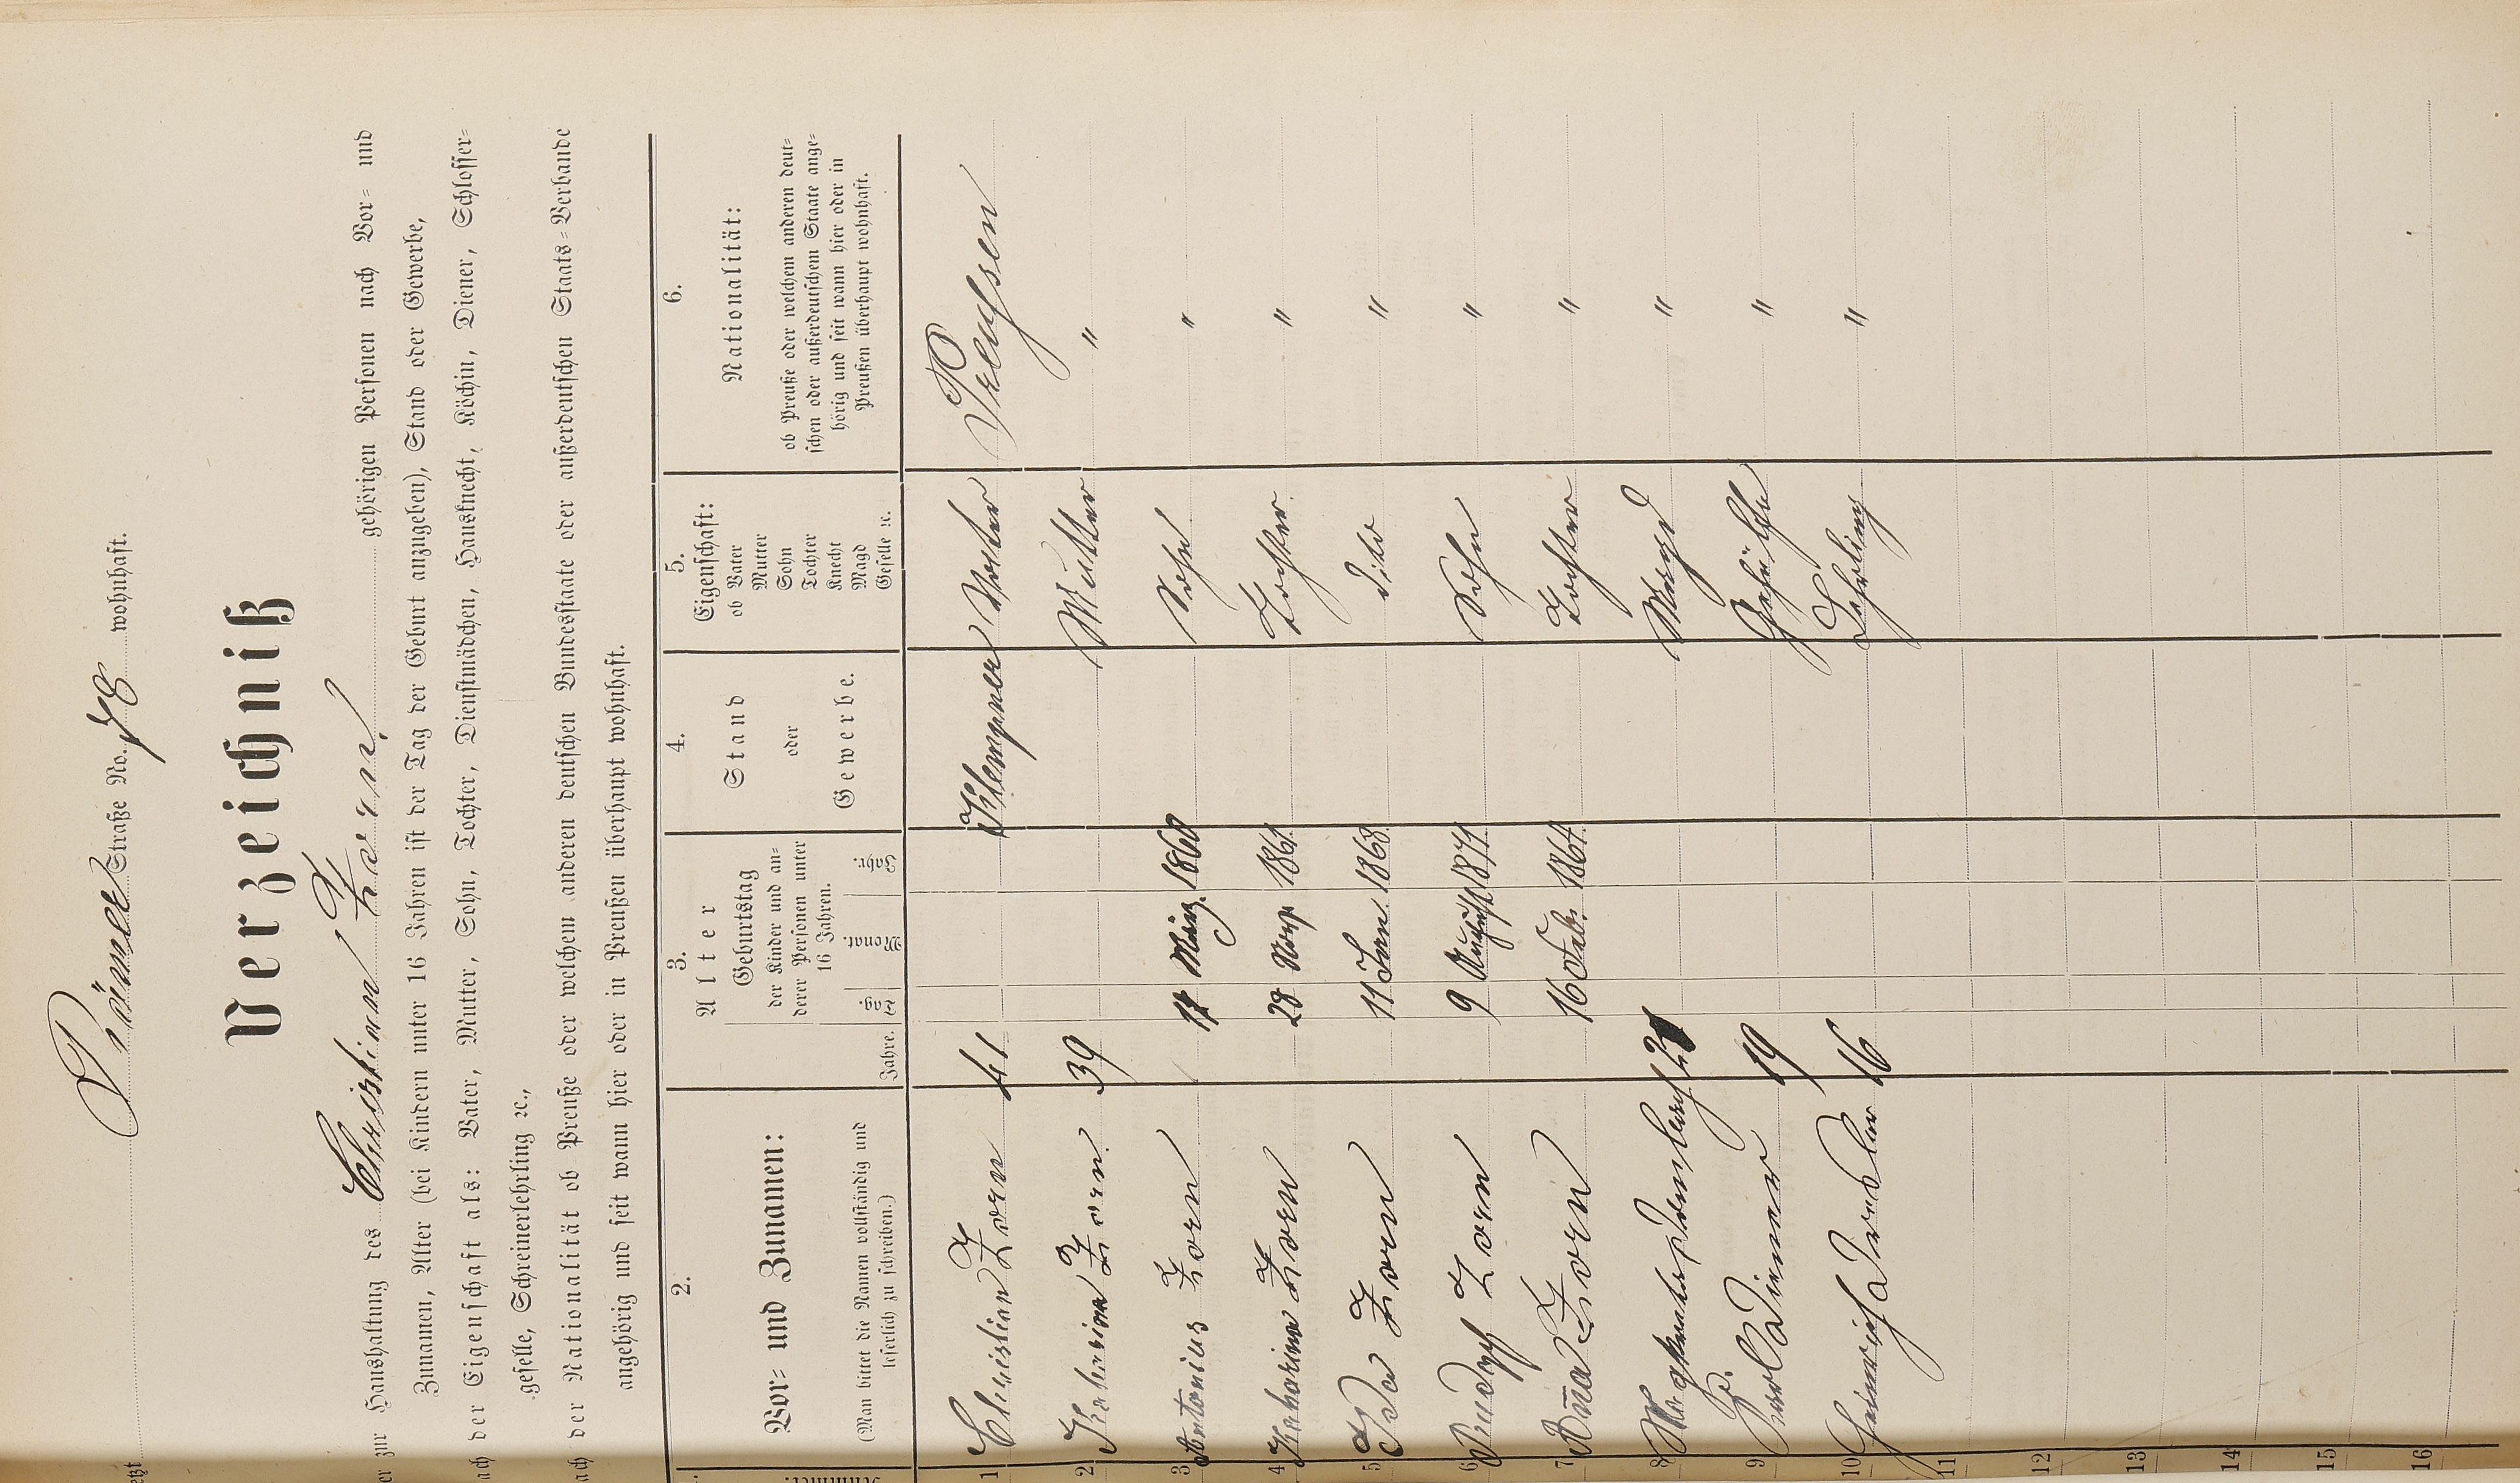 etzt Pariser Straße No. 78 wohnhaft.
Verzeichniß
er zur Haushaltung des Christian Zorn gehörigen Personen nach Vor- und
Zunamen, Alter (bei Kindern unter 16 Jahren ist der Tag der Geburt anzugeben), Stand oder Gewerbe,
ach der Eigenschaft als: Vater, Mutter, Sohn, Tochter, Dienstmädchen, Hausknecht, Köchin, Diener, Schlosser-
geselle, Schreinerlehrling ꝛc.,
ach der Nationalität ob Preuße oder welchem anderen deutschen Bundesstaate oder außerdeutschen Staats-Verbande
angehörig und seit wann hier oder in Preußen überhaupt wohnhaft.
2. Vor- und Zunamen: (Man bittet die Namen vollständig und leserlich zu schreiben.)
3. Alter Jahre. Geburtstag der Kinder und anderer Personen unter 16 Jahren. Tag. Monat. Jahr.
4. Stand oder Gewerbe.
5. Eigenschaft: ob Vater Mutter Sohn Tochter Knecht Magd Geselle ꝛc.
6. Nationalität: ob Preuße oder welchem anderen deutschen oder außerdeutschem Staate angehörig und seit wann hier oder in Preußen überhaupt wohnhaft.
1 Christian Zorn 41 Klempner Vater Preußen
2 Katharina Zorn 39 Mutter "
3 Antonius Zorn März 1860 Sohn "
4 Katharina Zorn 28 Nov 1861 Tochter "
5 Ida Zorn 11 Jan 1868 dito "
6 Rudolf Zorn 9 August 1871 Sohn "
7 Anna Zorn 16 Feb. 1864 Tochter "
8 Magd "
9 Karl Diener 19 Gehülfe "
10 Heinrich 16 Lehrling "
11
12
13
14
15
16